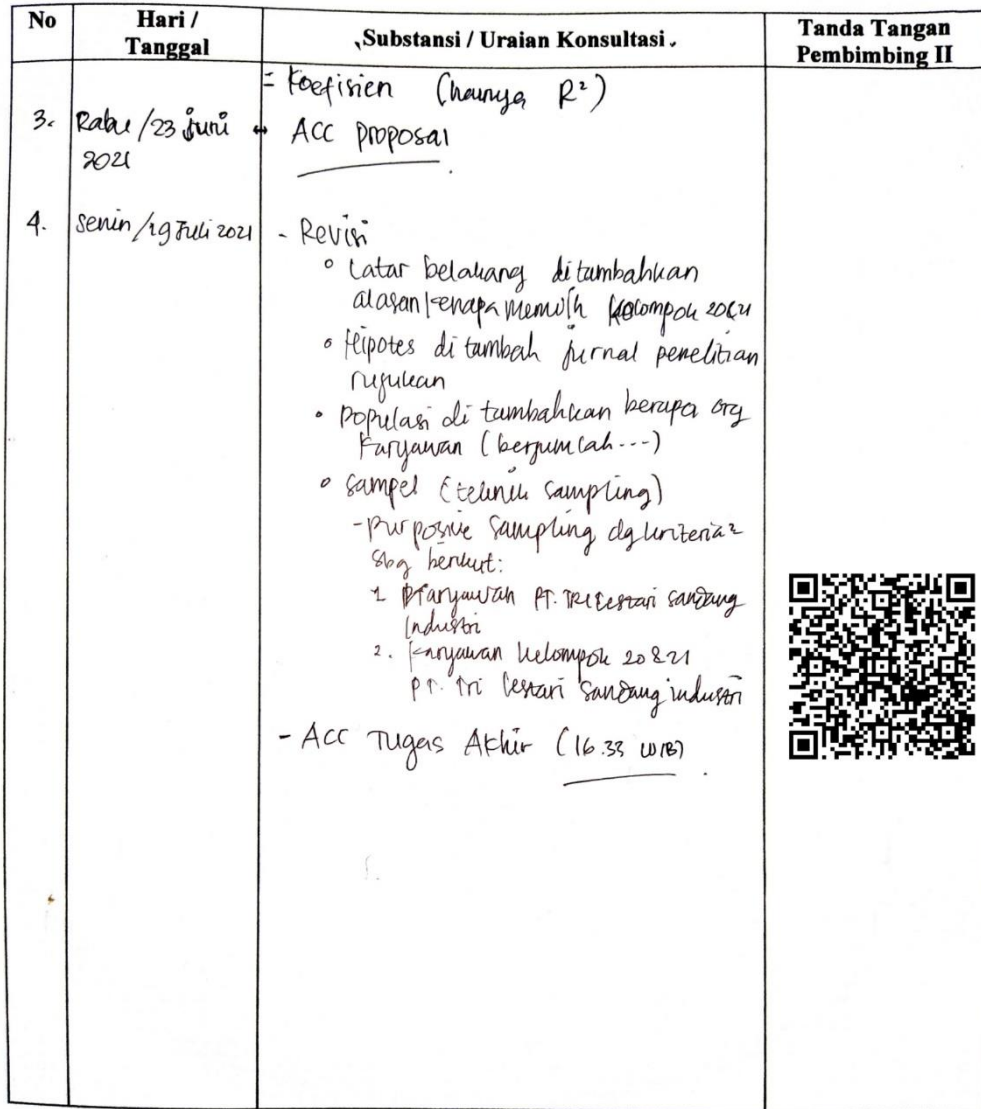 No
Hari /
Tanggal
Substansi / Uraian Konsultasi
Tanda Tangan
Pembimbing II
= Koefisien (hanya R²)
3. Rabu / 23 Juni ACC proposal
2021
4. Senin / 19 Juli 2021 - Revisi
° Latar belakang ditambahkan
alasan kenapa memilih kelompok 20&21
° Hipotes di tambah jurnal penelitian
rujukan
• Populasi di tambahkan berapa org
karyawan (berjumlah ---)
° Sampel (teknik sampling)
- purposive sampling dg kriteria²
sbg berikut:
1 Karyawan PT. TRI Lestari Sandang
Industri
2. Karyawan kelompok 20 & 21
PT. Tri Lestari Sandang industri
- ACC Tugas Akhir (16.33 WIB)